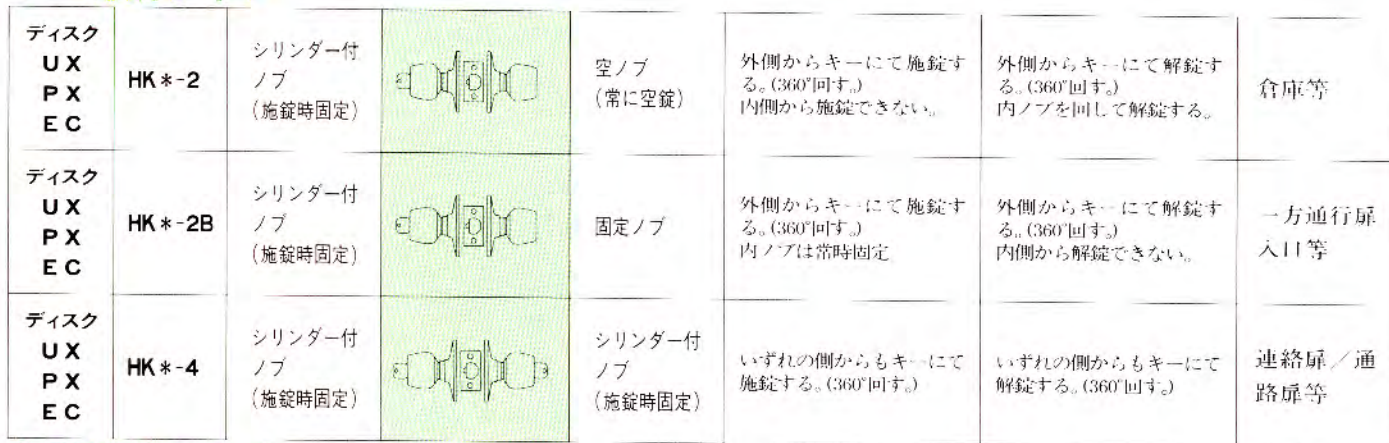 ディスク
UX
PX
EC
HK*-2
シリンダー付
ノブ
(施錠時固定)
空ノブ
(常に空錠)
外側からキーにて施錠す
る。(360°回す。)
内側から施錠できない。
外側からキーにて解錠す
る。(360°回す。)
内ノブを回して解錠する。
倉庫等
ディスク
UX
PX
EC
HK*-2B
シリンダー付
ノブ
(施錠時固定)
固定ノブ
外側からキーにて施錠す
る。(360°回す。)
内ノブは常時固定
外側からキーにて解錠す
る。(360°回す。)
内側から解錠できない。
一方通行扉
入口等
ディスク
UX
PX
EC
HK*-4
シリンダー付
ノブ
(施錠時固定)
シリンダー付
ノブ
(施錠時固定)
いずれの側からもキーにて
施錠する。(360°回す。)
いずれの側からもキーにて
解錠する。(360°回す。)
連絡扉/通
路扉等